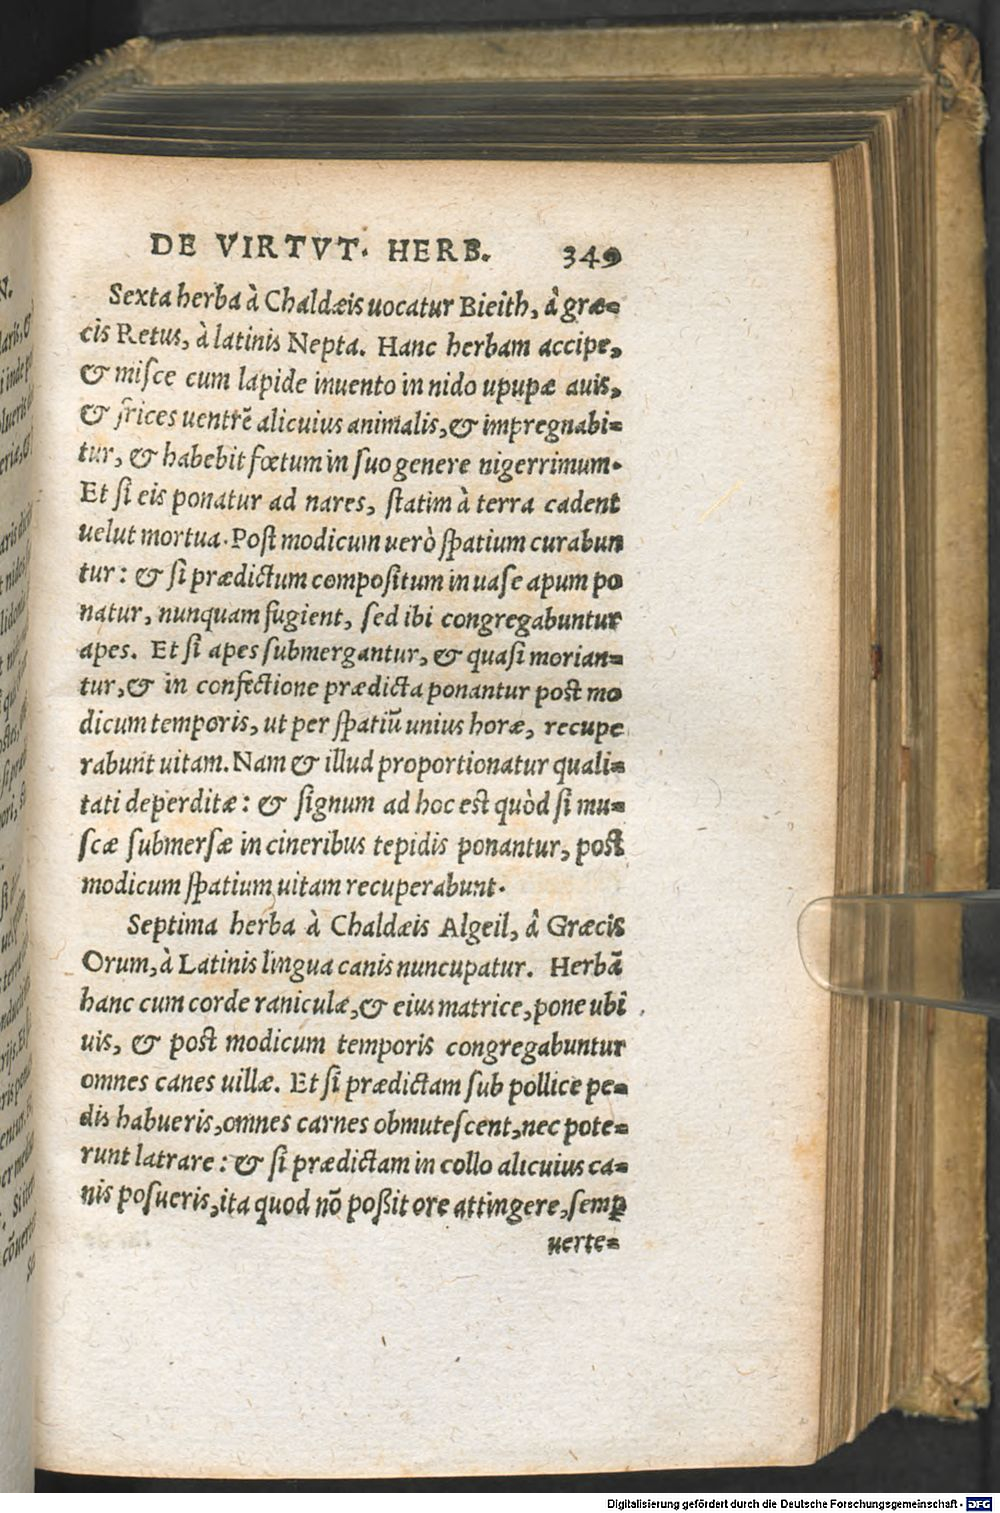 DE VIRTVT. HERB. 349
Sexta herba à Chaldæis uocatur Bieith, à græ=
cis Retus, à latinis Nepta. Hanc herbam accipe,
& misce cum lapide inuento in nido upupæ auis,
& frices uentrē alicuius animalis, & impregnabi=
tur, & habebit fœtum in suo genere nigerrimum.
Et si eis ponatur ad nares, statim à terra cadent
uelut mortua. Post modicum uerò spatium curabun
tur: & si prædictum compositum in uase apum po
natur, nunquam fugient, sed ibi congregabuntur
apes. Et si apes submergantur, & quasi morian=
tur, & in confectione prædicta ponantur post mo
dicum temporis, ut per spatiū unius horæ, recupe
rabunt uitam. Nam & illud proportionatur quali=
tati deperditæ: & signum ad hoc est quòd si mu=
scæ submersæ in cineribus tepidis ponantur, post
modicum spatium uitam recuperabunt.
Septima herba à Chaldæis Algeil, à Græcis
Orum, à Latinis lingua canis nuncupatur. Herbā
hanc cum corde raniculæ, & eius matrice, pone ubi
uis, & post modicum temporis congregabuntur
omnes canes uillæ. Et si prædictam sub pollice pe=
dis habueris, omnes carnes obmutescent, nec pote=
runt latrare: & si prædictam in collo alicuius ca=
nis posueris, ita quod nō poßit ore attingere, semꝑ
uerte=
Digitalisierung gefördert durch die Deutsche Forschungsgemeinschaft - DFG